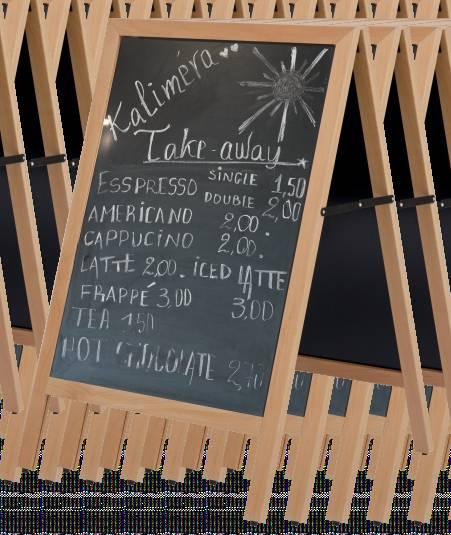 Kaliméra
Take-away
ESSPRESSO SINGLE 1,50
DOUBLE 2,00
AMERICANO 2,00
CAPPUCINO 2,00.
LATTE 2,00. ICED LATTE
FRAPPÉ 3,00 3,00
TEA 1,50
HOT CHOCOLATE